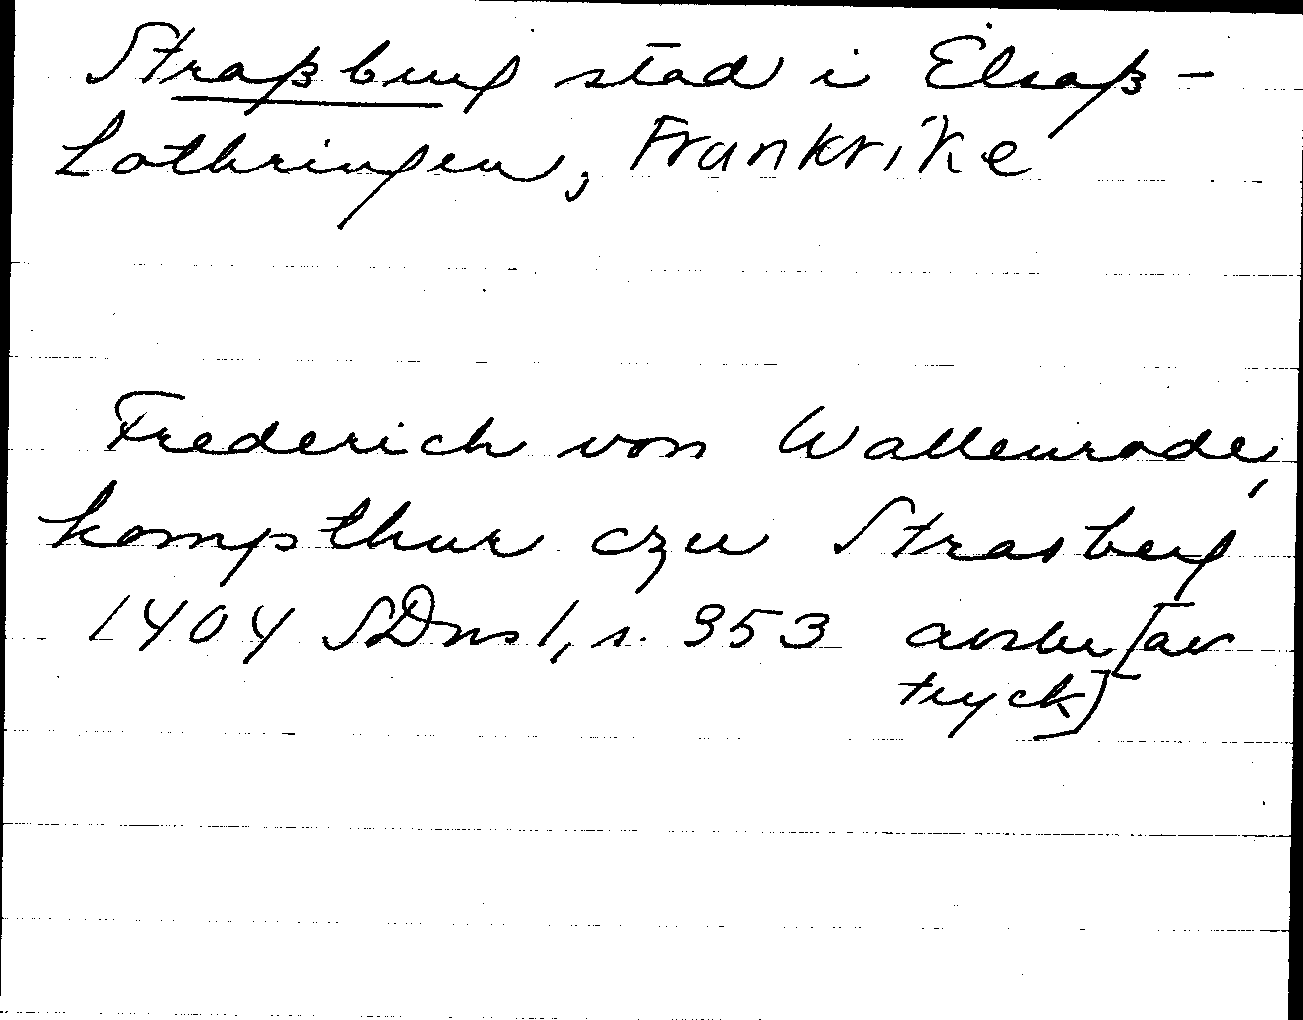 Straßburg stad i Elsaß-
Lothringen, Frankrike
Frederich von Wallenrode,
kompthur czu Strasberg
1404 SDns 1, s. 353 avskr [av
tryck]